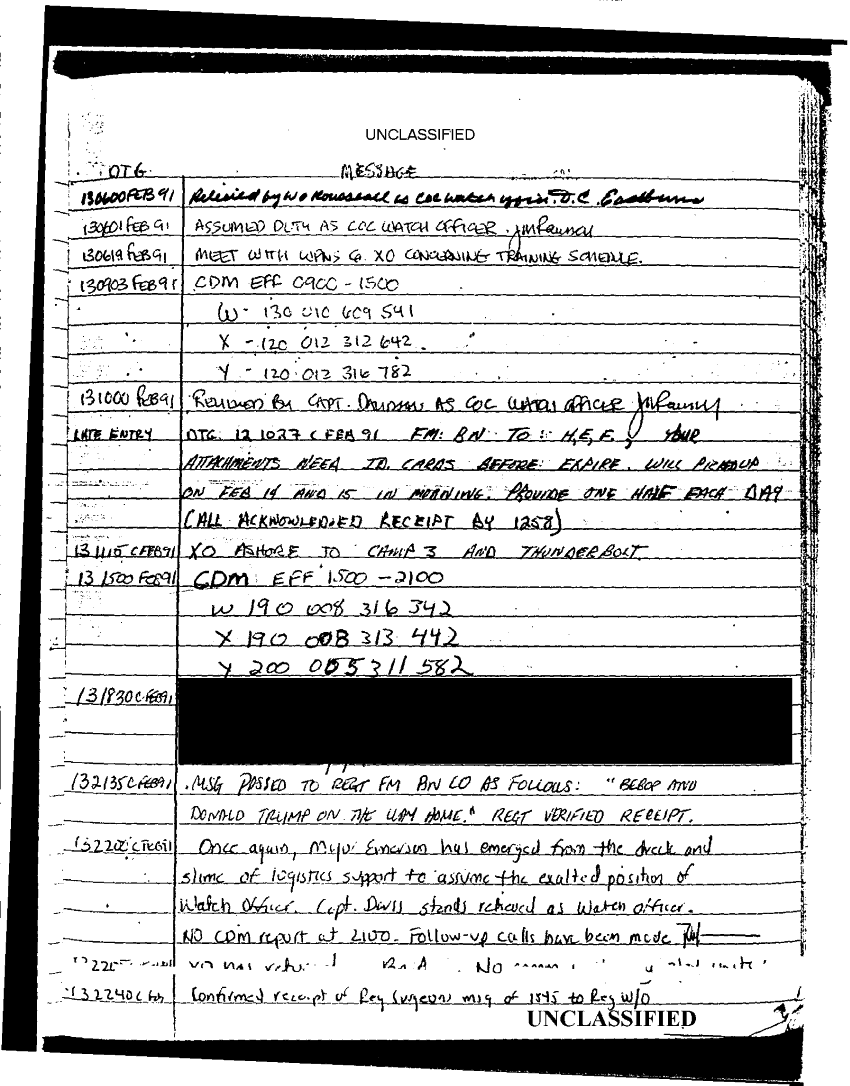 UNCLASSIFIED
DTG MESSAGE
130600FEB91 Relieved by WO Rousseau as COC watch D.C. Eastburn
130601FEB91 ASSUMED DUTY AS COC WATCH OFFICER.
130619FEB91 MEET WITH WPNS CO XO CONCERNING TRAINING SCHEDULE.
130903FEB91 CDM EFF 0900 - 1500
W - 130 010 609 541
X - 120 012 312 642
Y - 120 012 316 782
131000FEB91 RELIEVED BY CAPT. AS COC WATCH OFFICER
LATE ENTRY DTG: 121027C FEB 91 FM: BN TO: H, E, F, YOUR
ATTACHMENTS NEED ID. CARDS BEFORE EXPIRE. WILL PICKUP
ON FEB 14 AND 15 IN MORNING. PROVIDE ONE HALF EACH DAY
(ALL ACKNOWLEDGED RECEIPT BY 1258)
131115CFEB91 XO ASHORE TO CAMP 3 AND THUNDERBOLT
131500FEB91 CDM EFF 1500 - 2100
W 190 008 316 342
X 190 008 313 442
Y 200 005 311 582
131830CFEB91
132135CFEB91 MSG PASSED TO REGT FM BN CO AS FOLLOWS: "BEBOP AND
DONALD TRUMP ON THE WAY HOME." REGT VERIFIED RECEIPT.
132200CFEB91 Once again, Major Emerson has emerged from the dreck and
slime of logistics support to assume the exalted position of
Watch Officer. Capt. Davis stands relieved as Watch officer.
NO CDM report at 2100. Follow-up calls have been made
No
132240C Feb Confirmed receipt of Reg Surgeon msg of 1845 to Reg W/O
UNCLASSIFIED